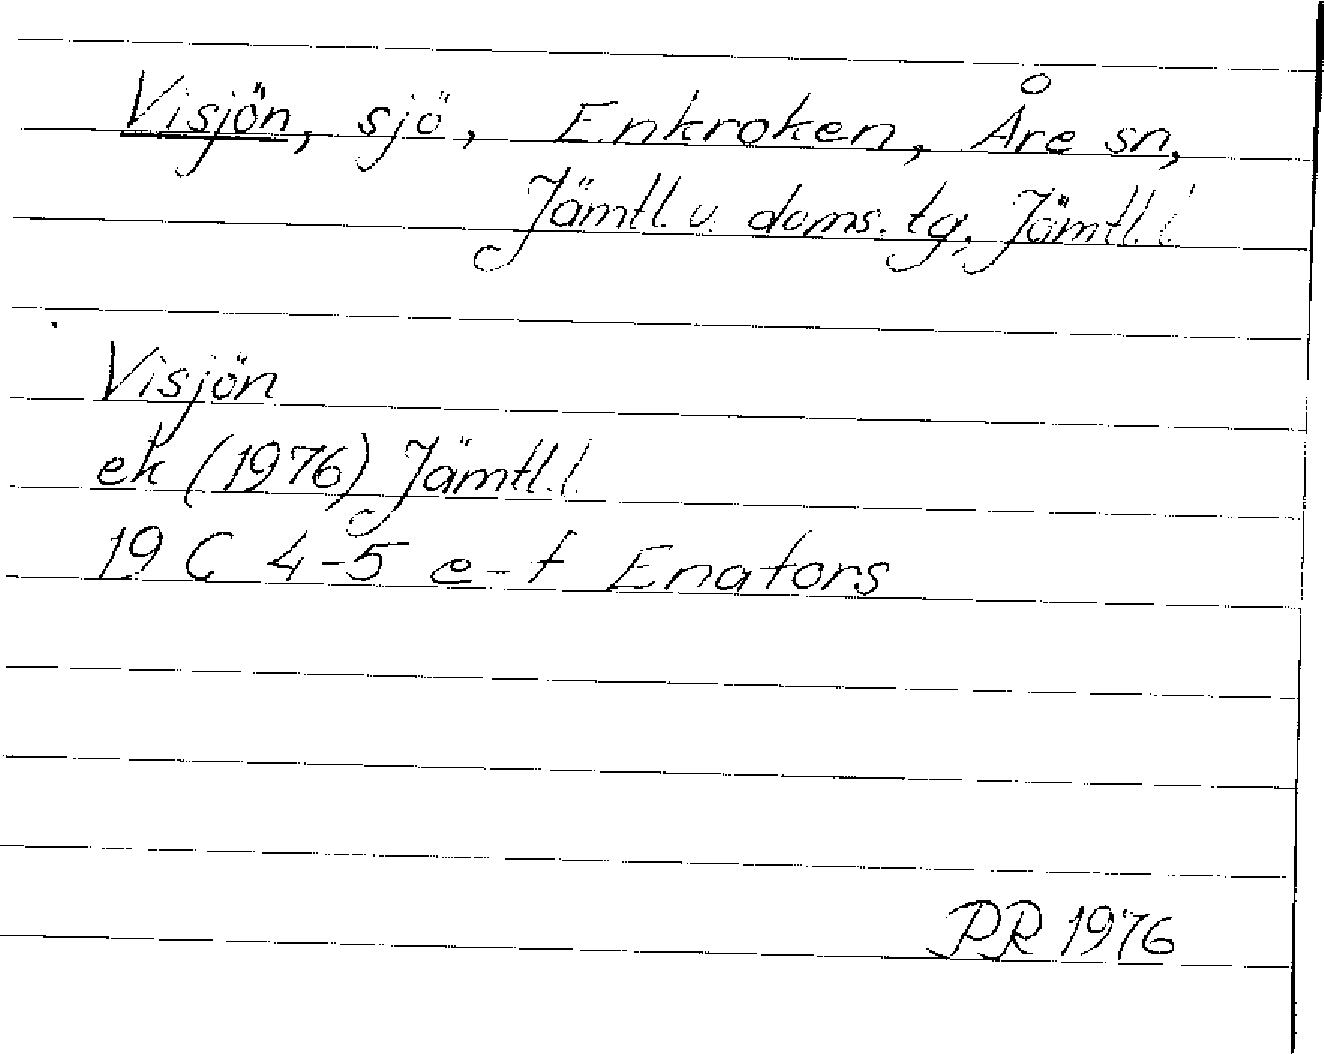 Visjön, sjö, Enkroken, Åre sn,
Jämtl. v. doms. tg, Jämtl. l
Visjön
ek (1976) Jämtl. l.
19 C 4-5 e-f Enafors
PR 1976